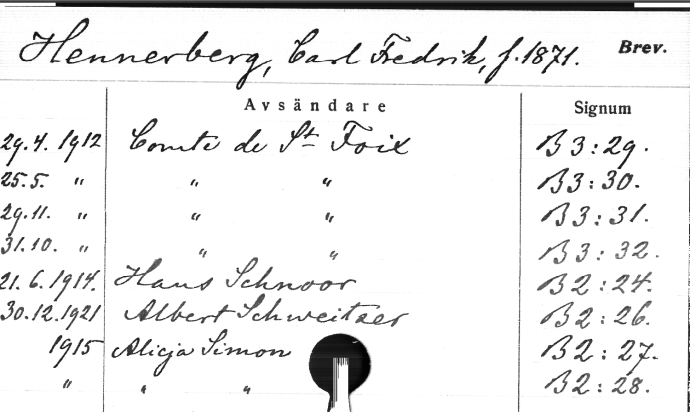 Hennerberg, Carl Fredrik, f. 1871. Brev.
Avsändare Signum
29.4. 1912 Comte de St Foix B3:29.
25.5. " " " B3:30.
29.11. " " " B3:31.
31.10. " " " B3:32.
21.6.1914. Hans Schnoor B2:24.
30.12.1921 Albert Schweitzer B2:26.
1915 Alicja Simon B2:27.
" " " B2:28.